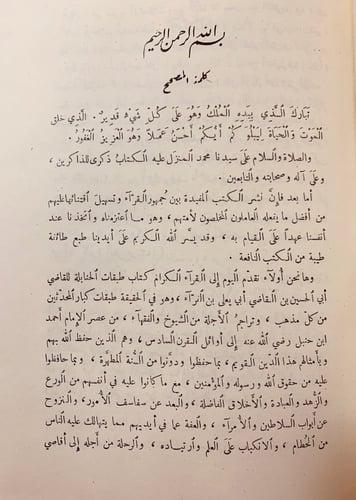 بسم الله الرحمن الرحيم
كلمة المصحح
تَبَارَكَ الَّذِي بِيَدِهِ المُلْكُ وَهُوَ عَلَى كُلِّ شَيْءٍ قَدِيرٌ . الَّذِي خَلَقَ
المَوْتَ وَالحَيَاةَ لِيَبْلُوَكُمْ أَيُّكُمْ أَحْسَنُ عَمَلًا وَهُوَ العَزِيزُ الغَفُورُ .
والصلاة والسلام على سيدنا محمد المنزل عليه الكتاب ذكرى للذاكرين ،
وعلى آله وصحابته والتابعين .
أما بعد فإنَّ نشر الكتب المفيدة بين جمهور القرآء وتسهيل اقتنائها عليهم
من أفضل ما يفعله العاملون المخلصون لأمتهم ، وهو ما اعتزمناه واتخذنا عند
أنفسنا عهداً على القيام به ، وقد يسَّر الله الكريم على أيدينا طبع طائفة
طيبة من الكتب النافعة .
وها نحن أولآء نقدّم اليوم إلى القرآء الكرام كتاب طبقات الحنابلة للقاضي
أبي الحسين بن القاضي أبي يعلى بن الفرآء ، وهو في الحقيقة طبقات كبار المحدّثين
من كلّ مذهب ، وتراجم الأجلة من الشيوخ والفقهآء ، من عصر الإمام أحمد
ابن حنبل رضي الله عنه إلى أوائل القرن السادس ، وهم الذين حفظ الله بهم
وبأمثالهم هذا الدين القويم ، بما حفظوا ودوَّنوا من السُّنة المطهَّرة ، وبما حافظوا
عليه من حقوق الله ورسوله والمؤمنين ، مع ما كانوا عليه في أنفسهم من الورع
والزُّهد والعبادة والأخلاق الفاضلة ، والبعد عن سفاسف الأمور ، والنزوح
عن أبواب السلاطين والأمرآء ، والعفة عما في أيديهم مما يتهالك عليه الناس
من الحُطام ، والانكباب على العلم وارتياده ، والرحلة من أجله إلى أقاصي